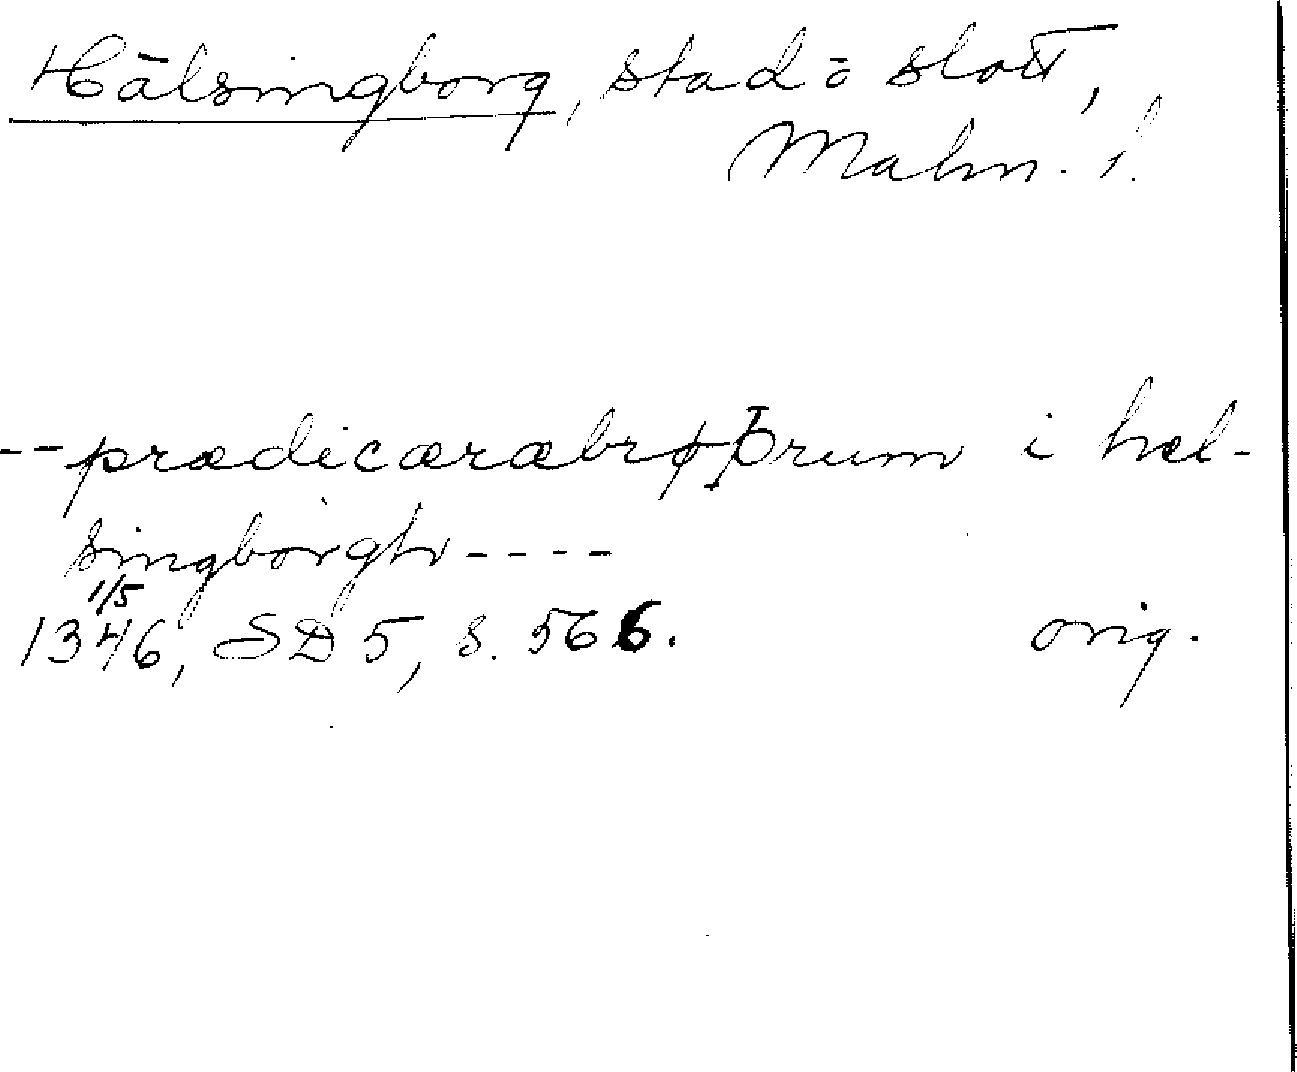 Hälsingborg, stad o slott,
Malm. l.
-- prædicæræbrøþrum i hæl-
singborgh ----
1/5
1346, SD 5, s. 566.
orig.